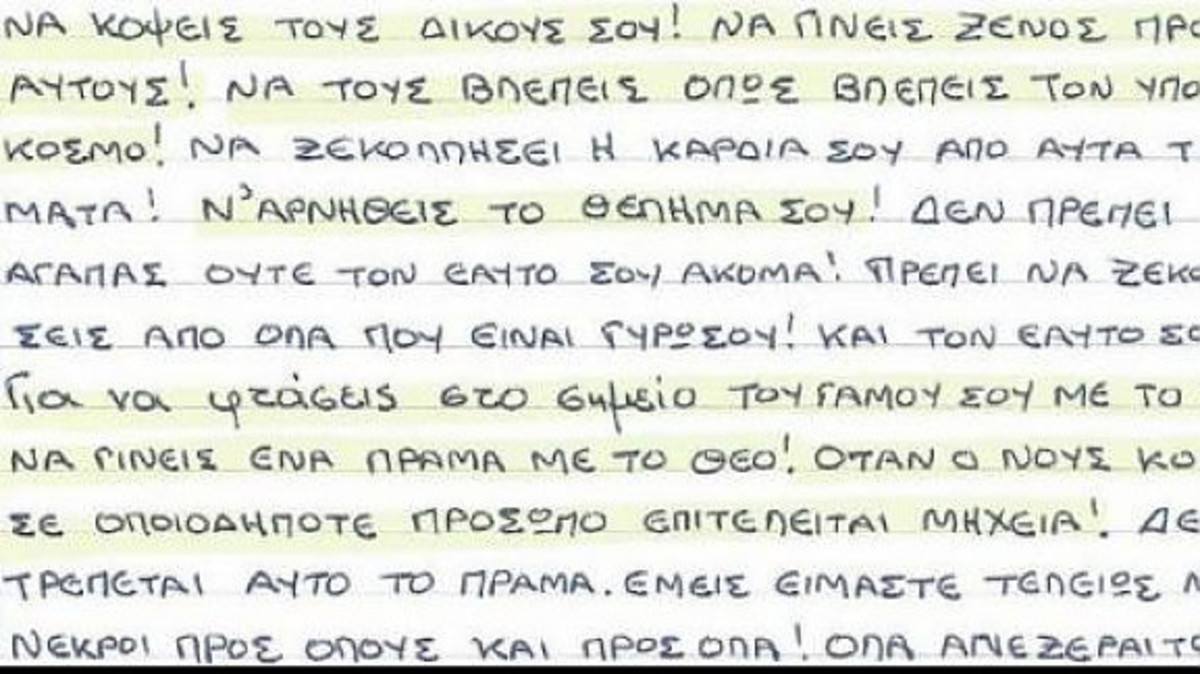 ΝΑ ΚΟΨΕΙΣ ΤΟΥΣ ΔΙΚΟΥΣ ΣΟΥ! ΝΑ ΓΙΝΕΙΣ ΞΕΝΟΣ ΠΡΟ
ΑΥΤΟΥΣ! ΝΑ ΤΟΥΣ ΒΛΕΠΕΙΣ ΟΠΩΣ ΒΛΕΠΕΙΣ ΤΟΝ ΥΠΟ
ΚΟΣΜΟ! ΝΑ ΞΕΚΟΛΛΗΣΕΙ Η ΚΑΡΔΙΑ ΣΟΥ ΑΠΟ ΑΥΤΑ Τ
ΜΑΤΑ! Ν'ΑΡΝΗΘΕΙΣ ΤΟ ΘΕΛΗΜΑ ΣΟΥ! ΔΕΝ ΠΡΕΠΕΙ
ΑΓΑΠΑΣ ΟΥΤΕ ΤΟΝ ΕΑΥΤΟ ΣΟΥ ΑΚΟΜΑ! ΠΡΕΠΕΙ ΝΑ ΞΕΚΟ
ΣΕΙΣ ΑΠΟ ΟΛΑ ΠΟΥ ΕΙΝΑΙ ΓΥΡΩΣΟΥ! ΚΑΙ ΤΟΝ ΕΑΥΤΟ ΣΟ
Για να φτάσεις στο σημείο ΤΟΥ ΓΑΜΟΥ ΣΟΥ ΜΕ ΤΟ
ΝΑ ΓΙΝΕΙΣ ΕΝΑ ΠΡΑΜΑ ΜΕ ΤΟ ΘΕΟ! ΟΤΑΝ Ο ΝΟΥΣ ΚΟ
ΣΕ ΟΠΟΙΟΔΗΠΟΤΕ ΠΡΟΣΩΠΟ ΕΠΙΤΕΛΕΙΤΑΙ ΜΗΧΕΙΑ! ΔΕ
ΤΡΕΠΕΤΑΙ ΑΥΤΟ ΤΟ ΠΡΑΜΑ. ΕΜΕΙΣ ΕΙΜΑΣΤΕ ΤΕΛΕΙΩΣ Ν
ΝΕΚΡΟΙ ΠΡΟΣ ΟΛΟΥΣ ΚΑΙ ΠΡΟΣ ΟΛΑ! ΟΛΑ ΑΝΕΞΕΡΑΙΤΩ